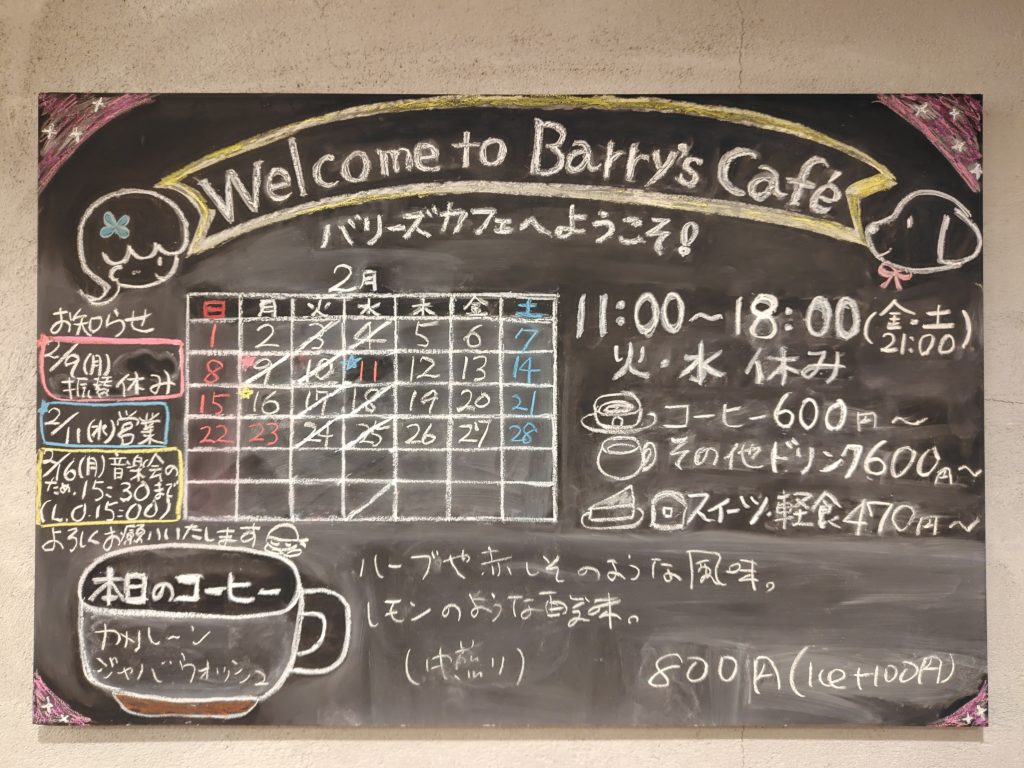 Welcome to Barry's Café
バリーズカフェへようこそ!
2月
日 月 火 水 木 金 土
1 2 3 4 5 6 7
8 9 10 11 12 13 14
15 16 17 18 19 20 21
22 23 24 25 26 27 28
お知らせ
2/9(月)
振替休み
2/11(水)営業
2/16(月)音楽会の
ため、15:30まで
(L.O.15:00)
よろしくお願いいたします
11:00〜18:00(金・土
21:00)
火・水 休み
コーヒー600円〜
その他ドリンク600円〜
スイーツ・軽食470円〜
本日のコーヒー
ジャバ
ハーブや赤しそのような風味。
レモンのような酸味。
(中煎り)
800円(Ice+100円)